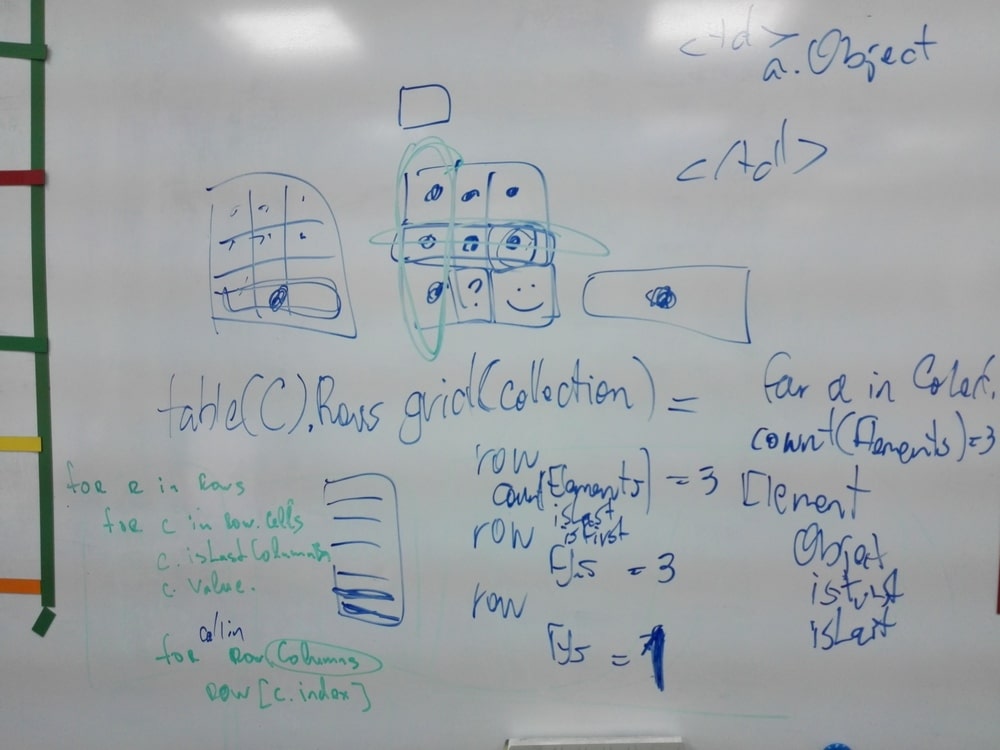 <td>
a.Object
</td>
?
table(C).Rows grid(collection) =
for a in Colect.
count(Elements)=3
row
count(Elements) = 3
isLast
isFirst
row
= 3
row
= 1
Element
Object
isFirst
isLast
for r in Rows
for c in Row.Cells
c. isLastColumn
c. Value.
col in
for Row Columns
Row [c.index]